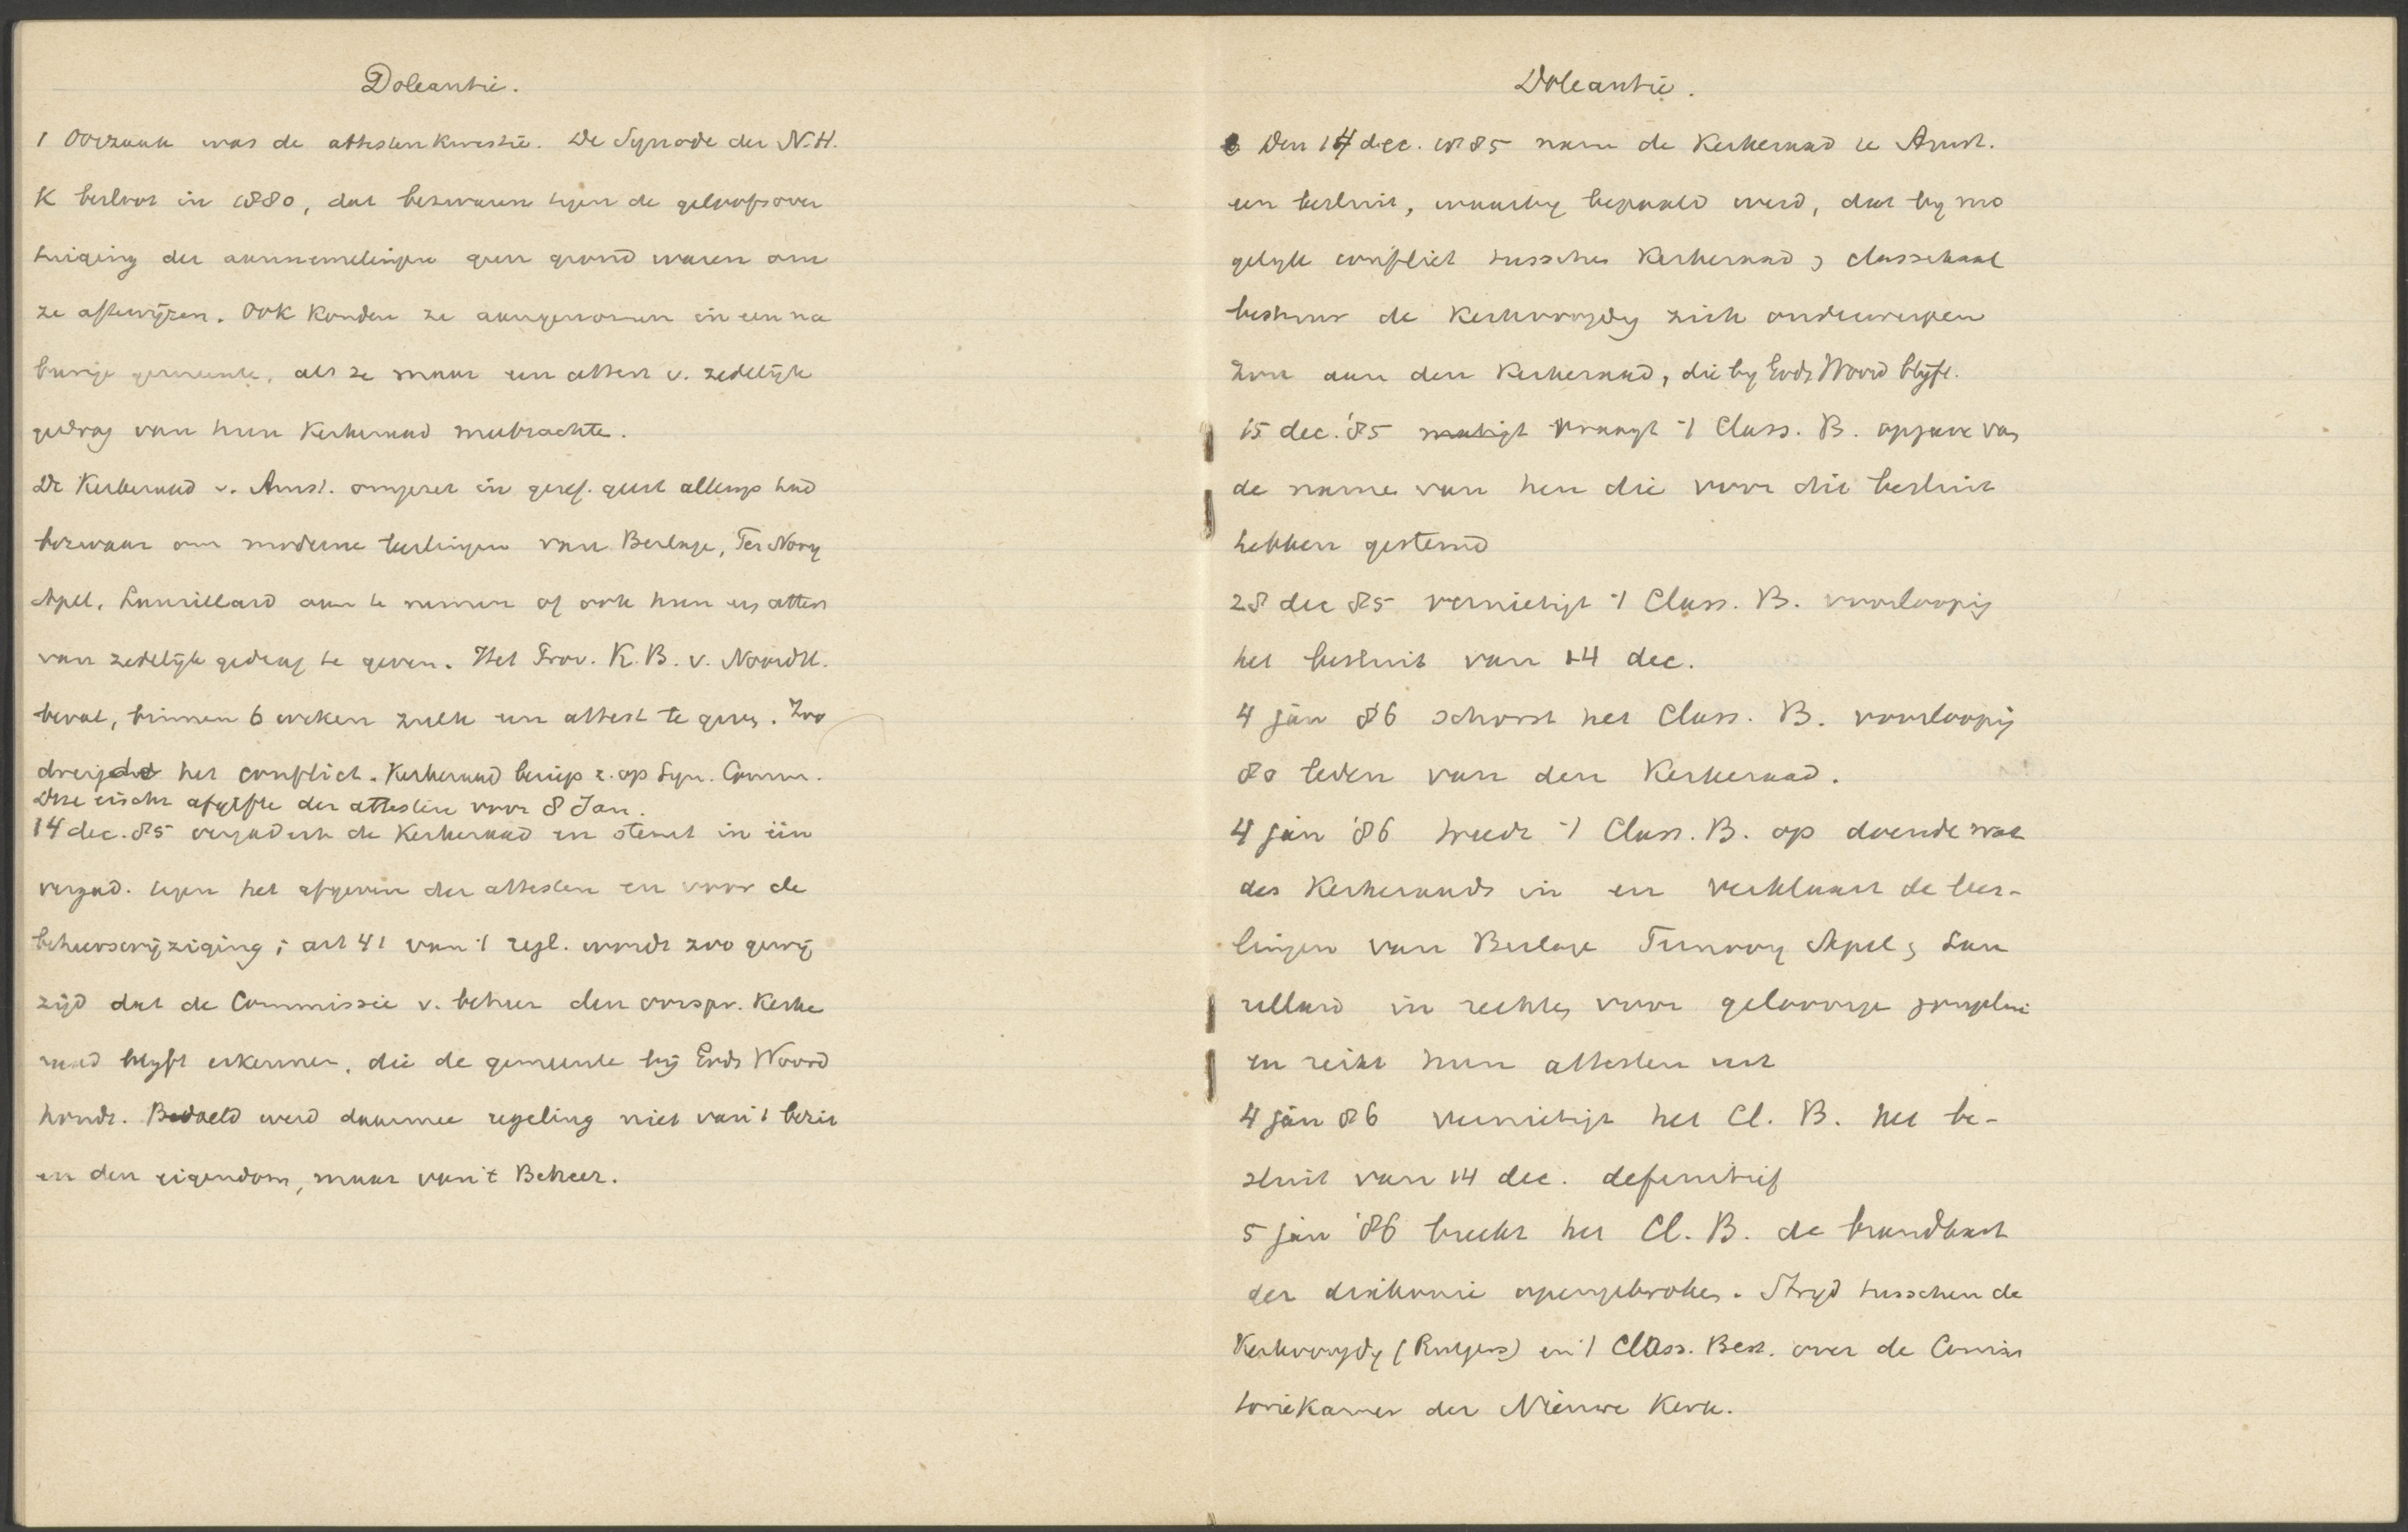 Doleantie.
1 Oorzaak was de attestenkwestie. De Synode der N.H.
K besloot in 1880, dat bezwaren tegen de geloofsover
tuiging der aannemelingen geen grond waren om
ze aftewijzen. Ook konden ze aangenomen in een na
burige gemeente, als ze maar een attest v. zedelijk
gedrag van hun Kerkeraad meebrachte.
De Kerkeraad v. Amst. omgezet in geref. geest allengs had
bezwaar om moderne leerlingen van Berlage, Ter Nooy
Apel, Laurillard aan te nemen of ook hun een attest
van zedelijk gedrag te geven. Het Prov. K.B. v. Noordh.
beval, binnen 6 weken zulk een attest te geven. Zoo
dreigde het conflict. Kerkeraad beriep z. op Syn. Comm.
Deze eischte afgifte der attesten voor 8 Jan.
14 dec. 85 vergadert de Kerkeraad en stemt in één
vergad. tegen het afgeven der attesten en voor de
beheerswijziging; art 41 van 't regl. wordt zoo gewij
zijd dat de Commissie v. beheer den oorspr. Kerke
raad blijft erkennen, die de gemeente bij Gods Woord
houdt. Bedoeld werd daarmee regeling niet van 't bezit
en den eigendom, maar van 't Beheer.
Doleantie.
Den 14 dec. 1885 nam de Kerkeraad te Amst.
een besluit, waarbij bepaald werd, dat bij mo
gelijk conflict tusschen Kerkeraad & classikaal
bestuur de Kerkvoogdij zich onderwerpen
zou aan den Kerkeraad, die bij Gods Woord blijft.
15 dec. '85 vraagt 't Class. B. opgave van
de name van hen die voor dit besluit
hebben gestemd
28 dec 85 vernietigt 't Class. B. voorloopig
het besluit van 14 dec.
4 jan 86 schorst het Class. B. voorloopig
80 leden van den Kerkeraad.
4 jan '86 treedt 't Class. B. op doende wat
des Kerkeraads is en verklaart de leer-
lingen van Berlage Ternooy Apel & Lau
rillard in rechten voor geloovige jongelui
en reikt hun attesten uit
4 jan 86 vernietigt het Cl. B. het be-
sluit van 14 dec. definitief
5 jan '86 breekt het Cl. B. de brandkast
der diakonie opengebroken. Strijd tusschen de
Kerkvoogdij (Rutgers) en 't Class. Best. over de Consis
toriekamer der Nieuwe Kerk.